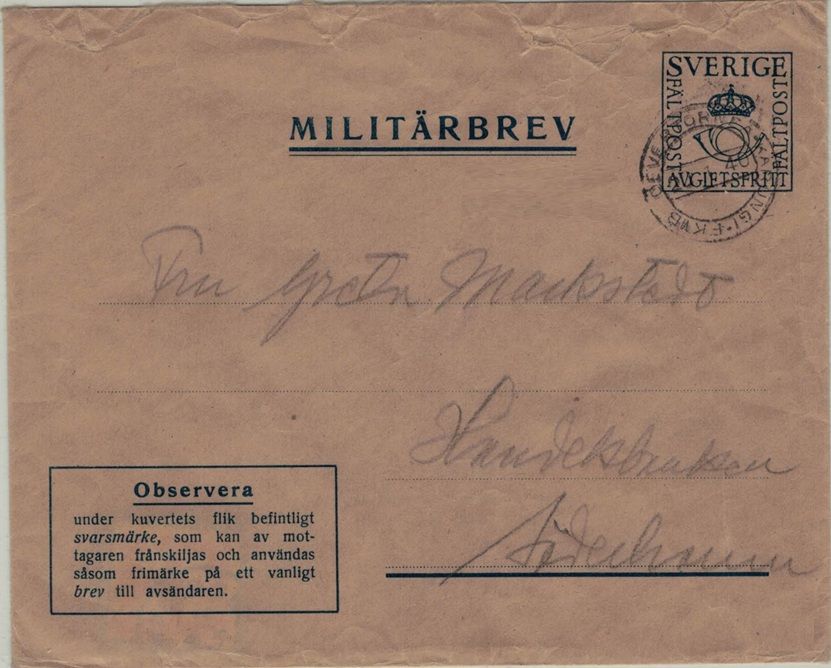 SVERIGE
FÄLTPOST
FÄLTPOST
AVGIFTSFRITT
MILITÄRBREV
Fru Greta Mackstedt
Handelsbanken
Söderhamn
Observera
under kuvertets flik befintligt
svarsmärke, som kan av mot-
tagaren frånskiljas och användas
såsom frimärke på ett vanligt
brev till avsändaren.